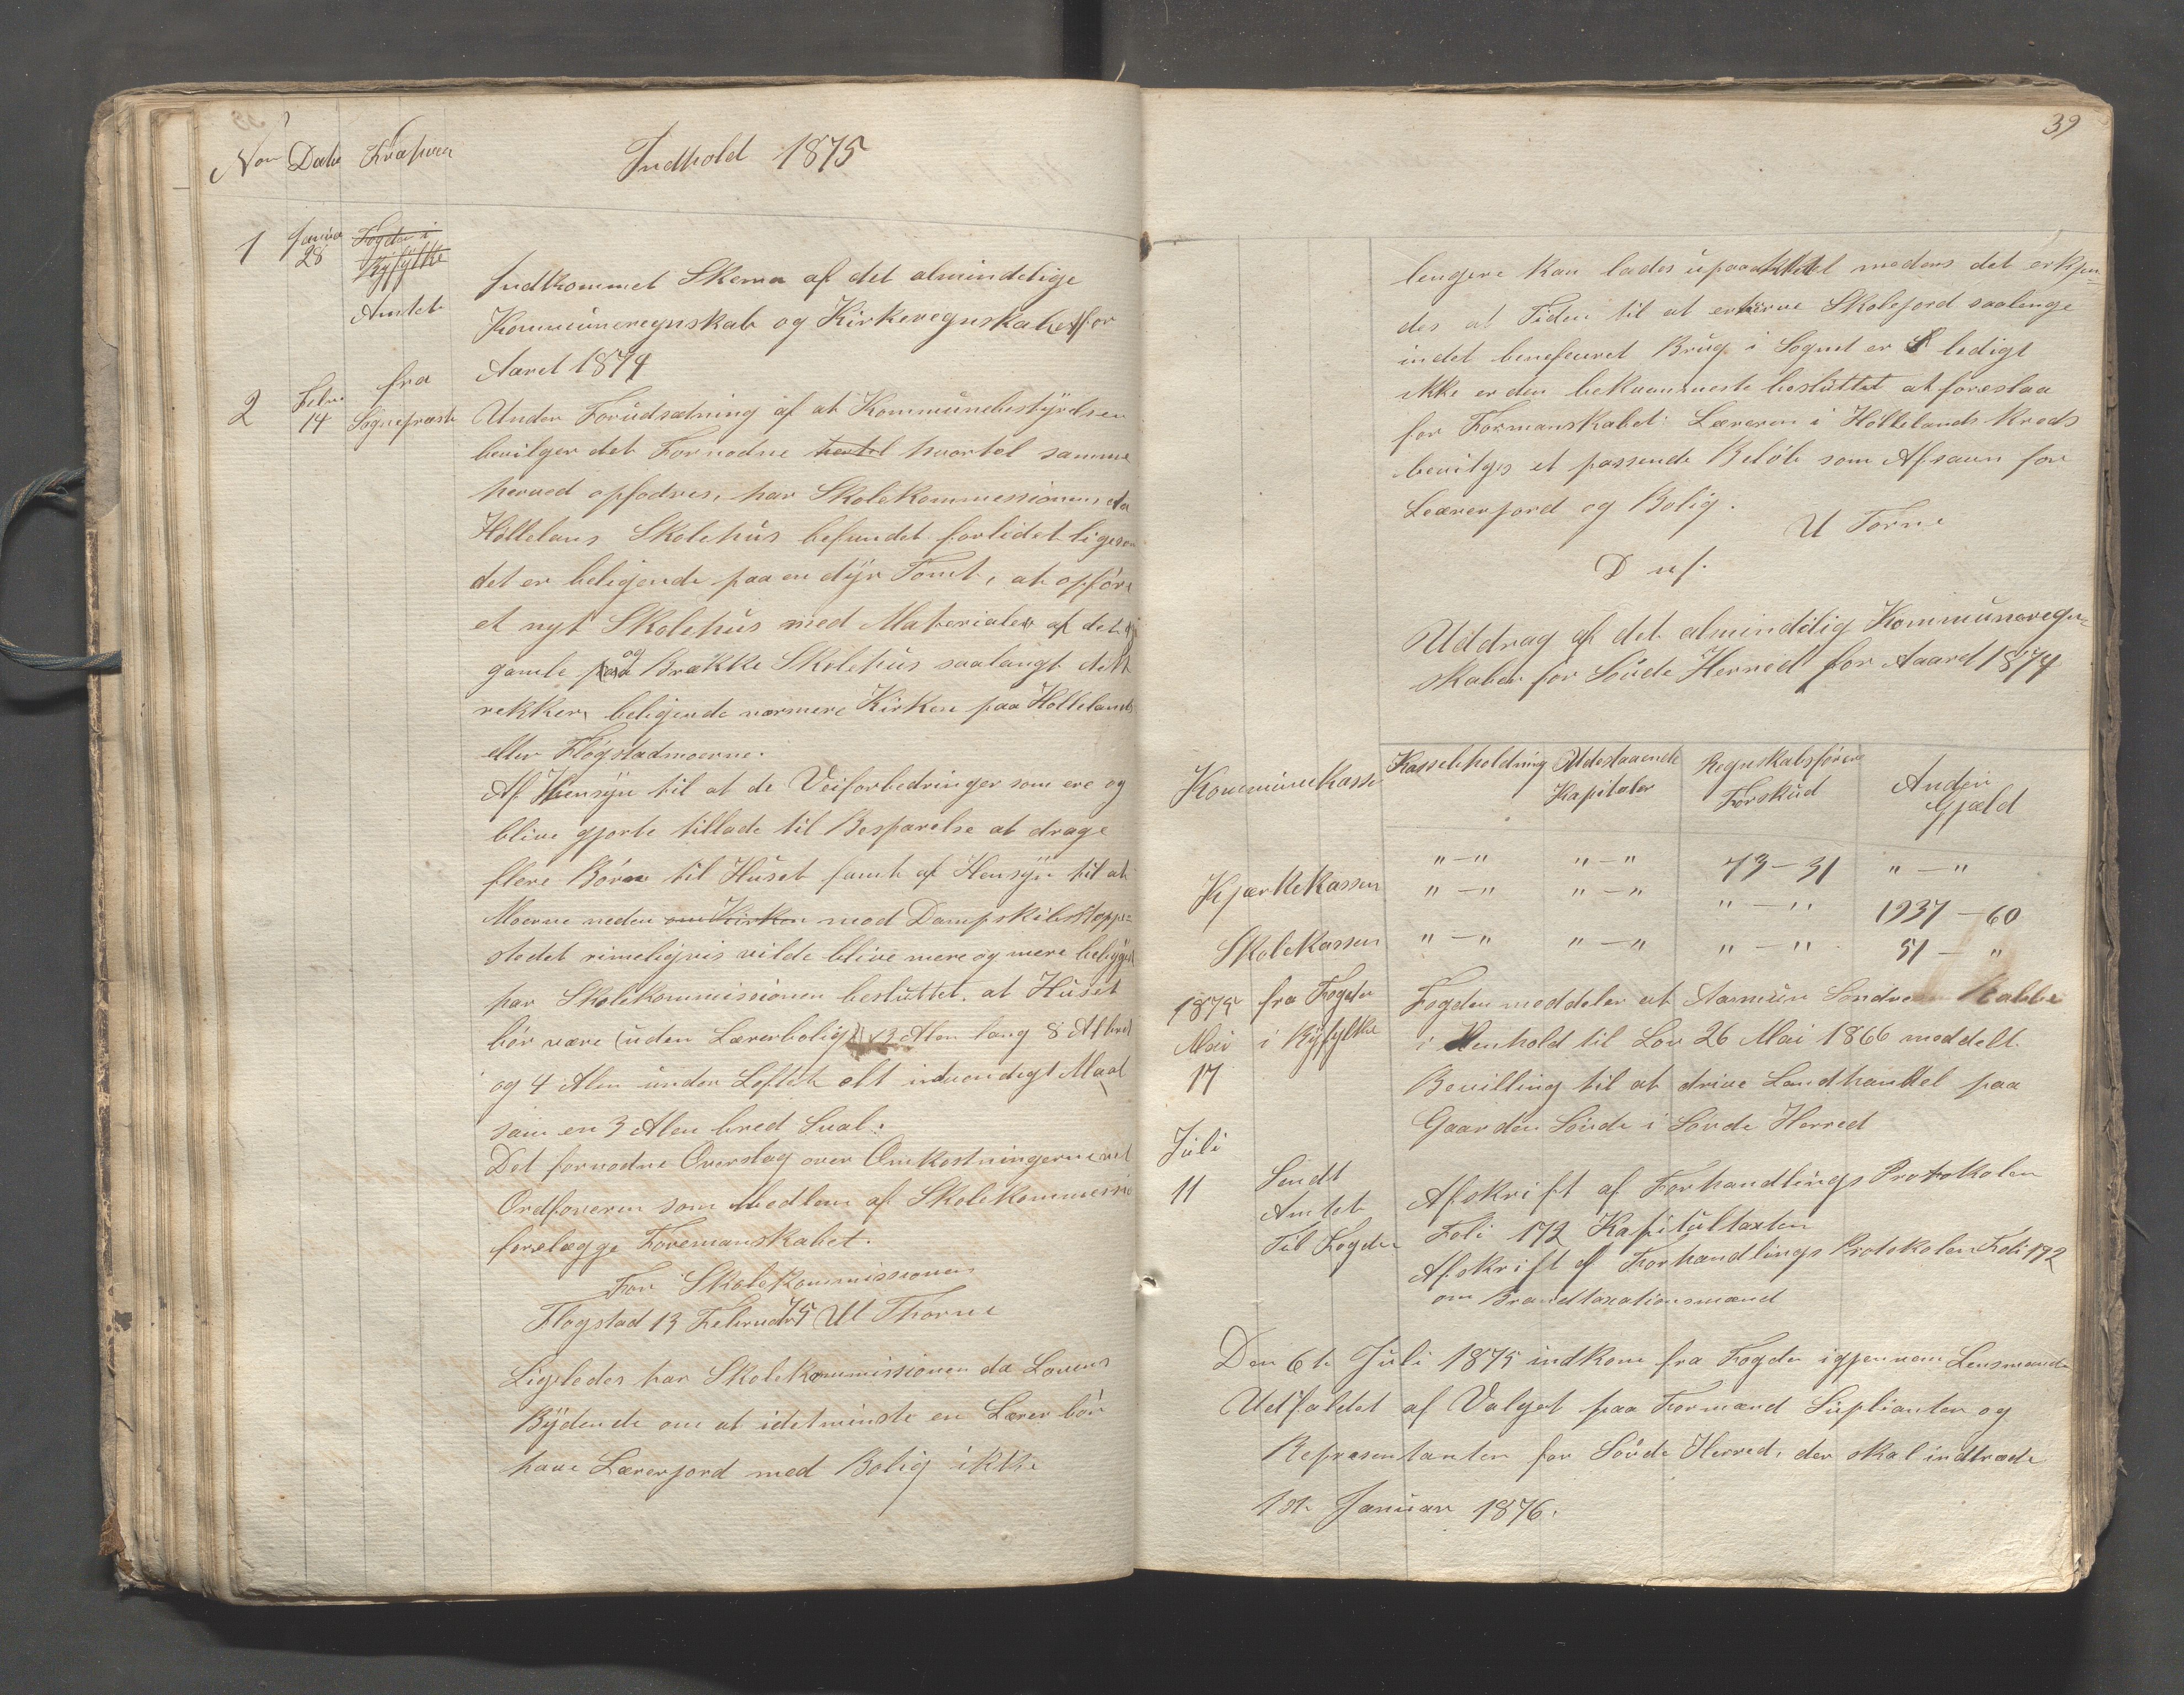 Nor Dato Fra hvem Indhold 1875
1 Januar 28 Fogden i Ryfylke
Amtet
Indkommet Skema af det almindelige
Kommuneregnskab og Kirkeregnskabet for
Aaret 1874
2 Febr 14 fra Sogneprest
Under Forudsætning af at Kommunebestyrelsen
bevilger det Fornødne hertil hvortel samme
herved opfodres, har Skolekommissionen da
Höllelans Skolehus befundet forlidet ligesom
det er beligende paa en dyr Tomt, at opföre
et nyt Skolehus med Materialer af det
gamle paa og Brække Skolehus saalangt dette
rekker, beligende nærmere Kirken paa Höllelands
eller Flögstadmoerne.
Af Hensyn til at de Veiforbedringer som ere og
blive gjorte tillade til Besparelse at drage
flere Börn til Huset samt af Hensyn til at
Moerne neden om Kirken mod Dampskibstoppe=
stedet rimeligvis vilde blive mere og mere bebygget
har Skolekommissionen besluttet, at Huset
bör være (uden Lærerbolig) 13 Alen lang 8 Al bred
og 4 Alen under Loftet alt indvendigt Maal
sam en 3 Alen bred Sval.
Det fornødne Overslag over Omkostningerne vil
Ordføreren som Medlem af Skolekommissio
forelægge Formanskabet.
For Skolekommissionen
Flogstad 13 Februar 75 U Thorne
Ligeledes har Skolekommissionen da Lovens
Bydende om at idetminste en Lærer bör
have Lærerjord med Bolig ikke
39
lengere kan lades upaaaktet medens det erkjen=
des at Tiden til at erhverve Skolejord saalenge
indet beneficeret Brug i Sognet er ledigt
ikke er den bekvemmeste besluttet at foreslaa
for Formanskabet: Læreren i Höllelands Kreds
bevilges et passende Belöb som Afsavn for
Lærerjord og Bolig.
U Torne
D us.
Uddrag af det almindelig Kommuneregn=
skaber for Söude Herred for Aaard 1874
Kassebeholdning Udestaaende Kapitaler Regnskabsförers Forskud Anden Gjæld
Kommunekasse "-" "-" 73-31 "-"
Kjærkekassen "-" "-" "-" 1937-60
Skolekassen "-" "-" "-" 51-"
1875 fra Fogden Fogden meddeler at Aamun Söndre
Mai i Ryfylke i Henhold til Lov 26 Mai 1866 meddelt
17 Bevilling til at drive Landhandel paa
Gaarden Söude i Söude Herred
Juli
11 Sendt
Amtet Afskrift af Forhandlings Protokolen
Foli 172 Kapitultaxten
Til Fogden Afskrift af Forhandlings Protokolen Foli 172
om Brandtaxationsmænd
Den 6te Juli 1875 indkom fra Fogden igjennem Lensmanden
Udfaldet af Valget paa Formænd Suplianter og
Repræsentanter for Söude Herred, der skal indtræde
1st Januar 1876.